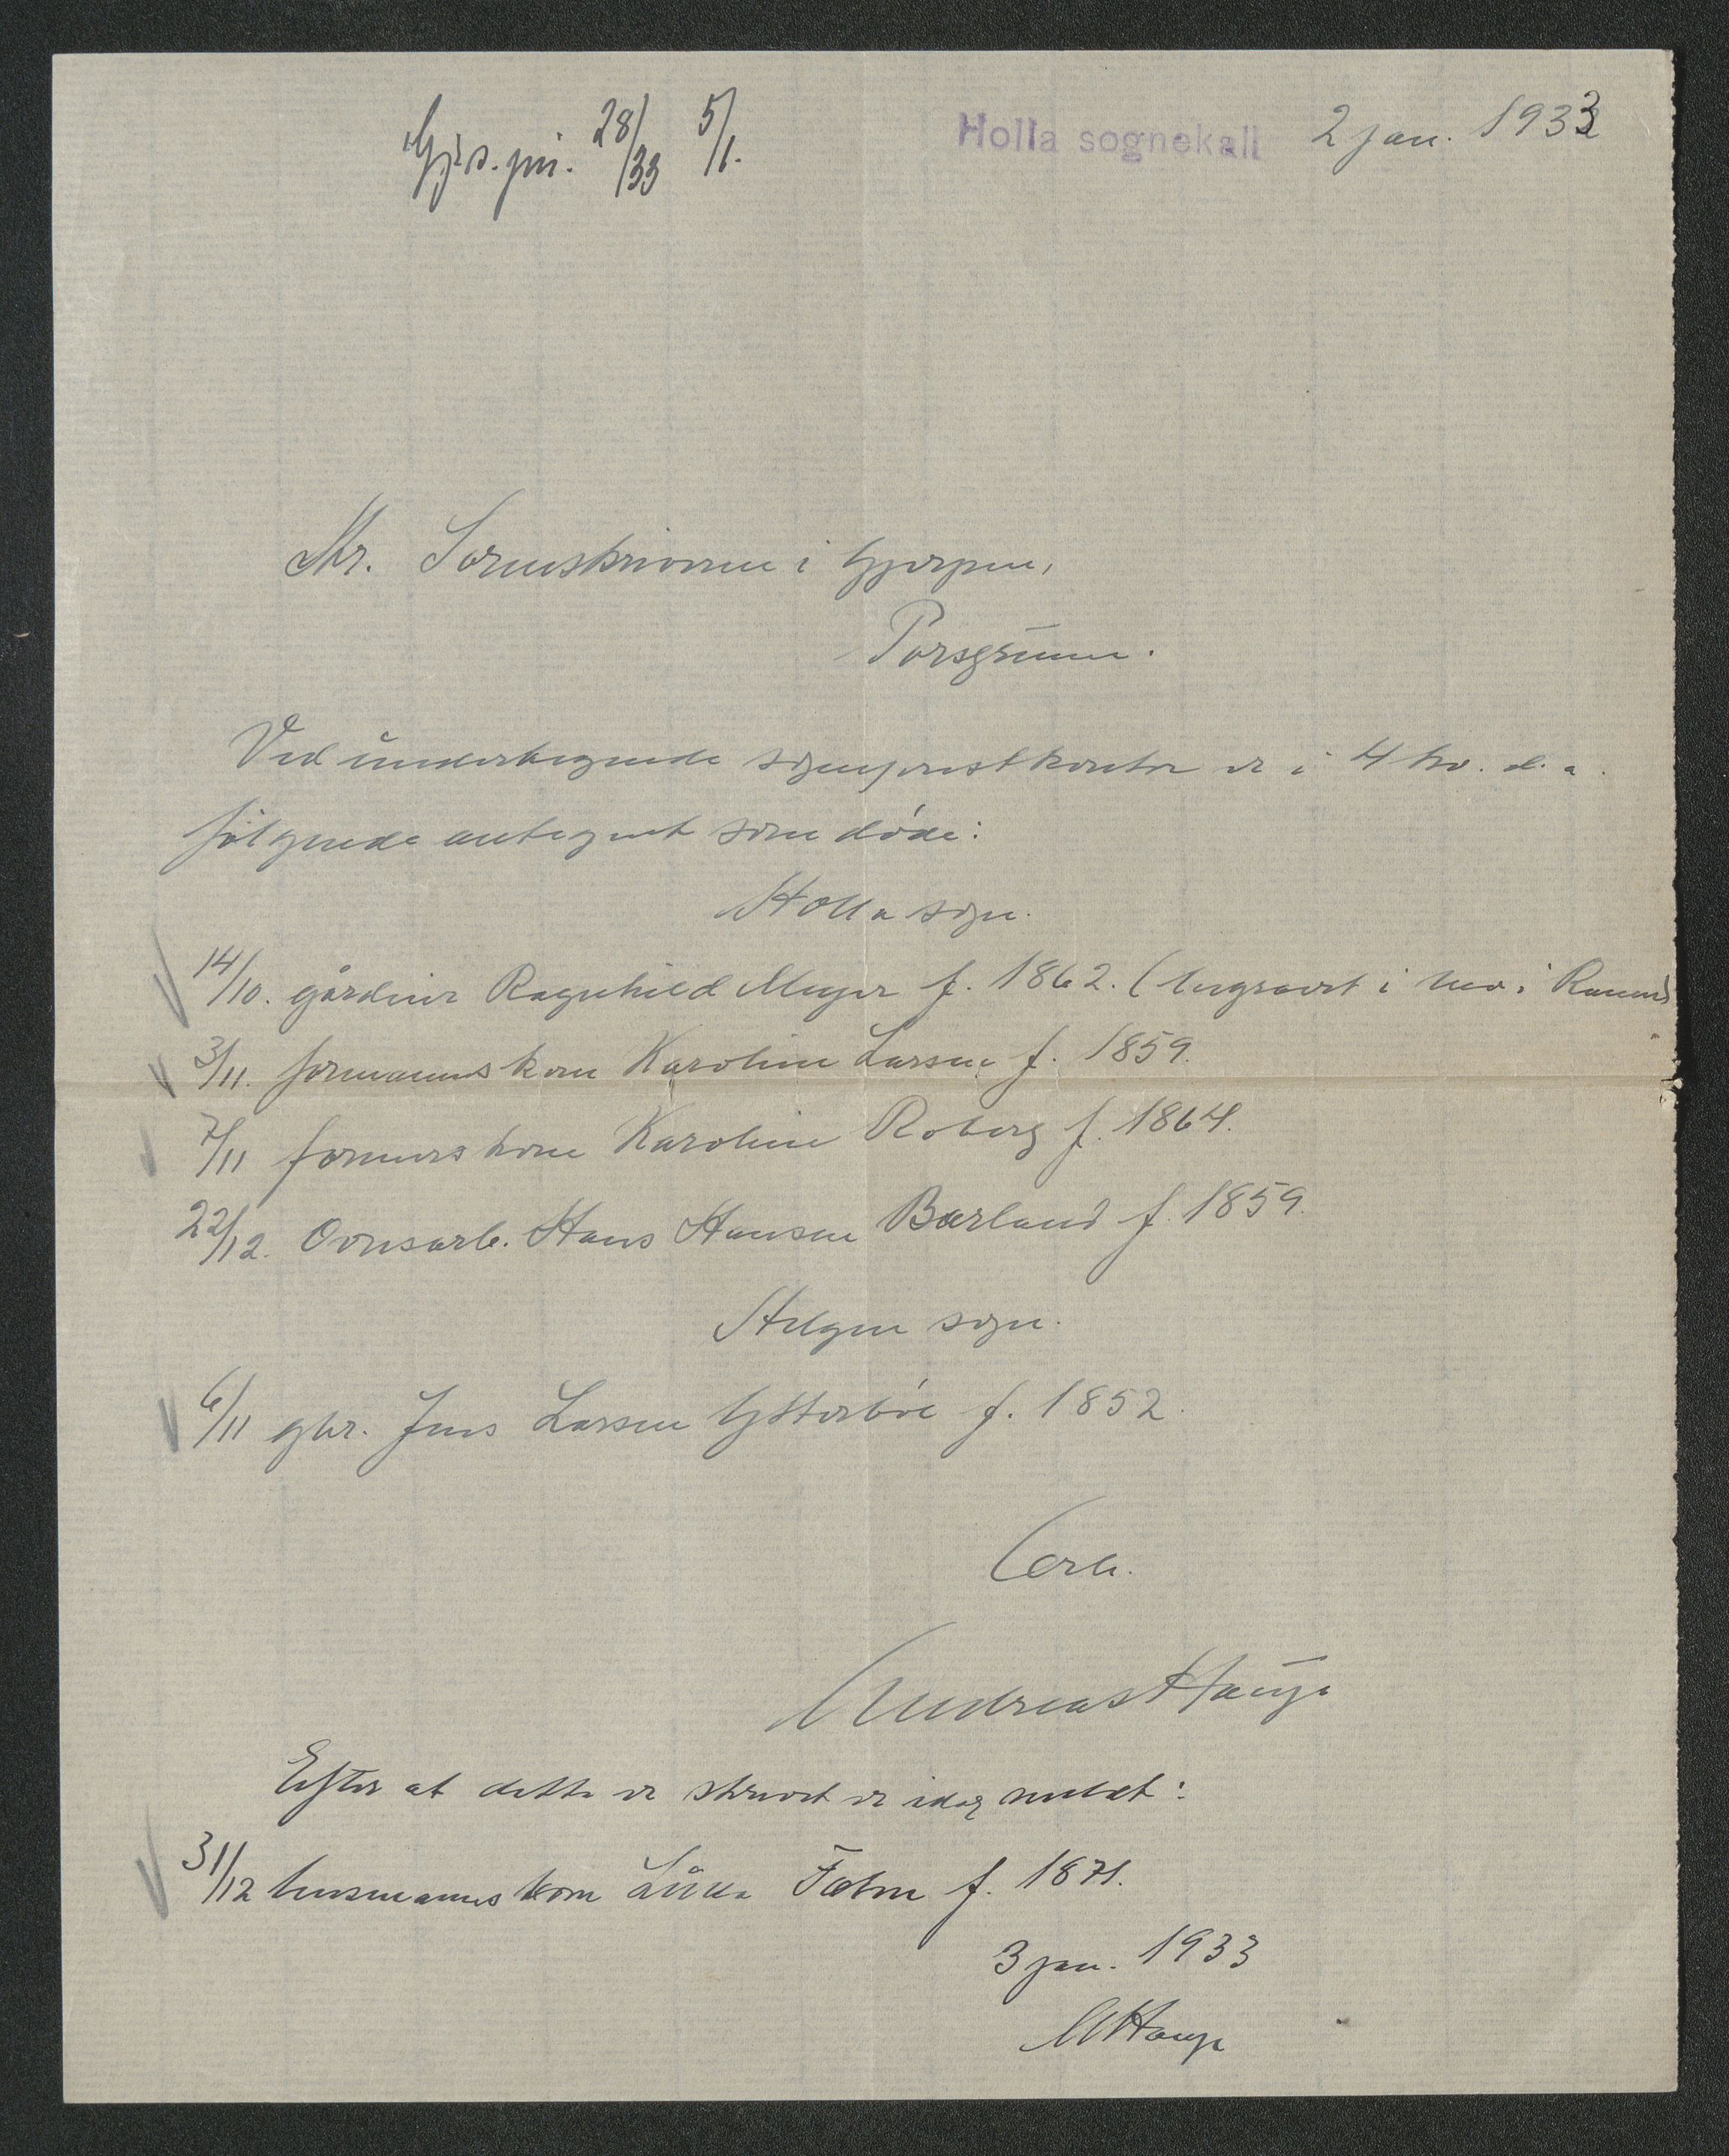 Gj.s.jnr. 28/33 5/1.
Holla sognekall 2 jan. 1933
Hr. Sorenskriveren i Gjerpen,
Porsgrunn.
Ved undertegnede sogneprestkontor er i 4 kv. d. a.
følgende antegnet som døde:
Holla sogn.
14/10. gårdeier Ragnhild Meyer f. 1862. (begravet i Mo i Rana)
3/11. formannskone Karoline Larsen f. 1859.
7/11 formers kone Karoline Roberg f. 1864.
22/12. Ovnsarb. Hans Hansen Barland f. 1859.
Helgen sogn.
6/11 gbr. Jens Larsen Ytterbøe f. 1852.
Ærb.
Andreas Hauge
Efter at dette er skrevet er idag meldt:
31/12 husmannskone f. 1871.
3 jan. 1933
A Hauge